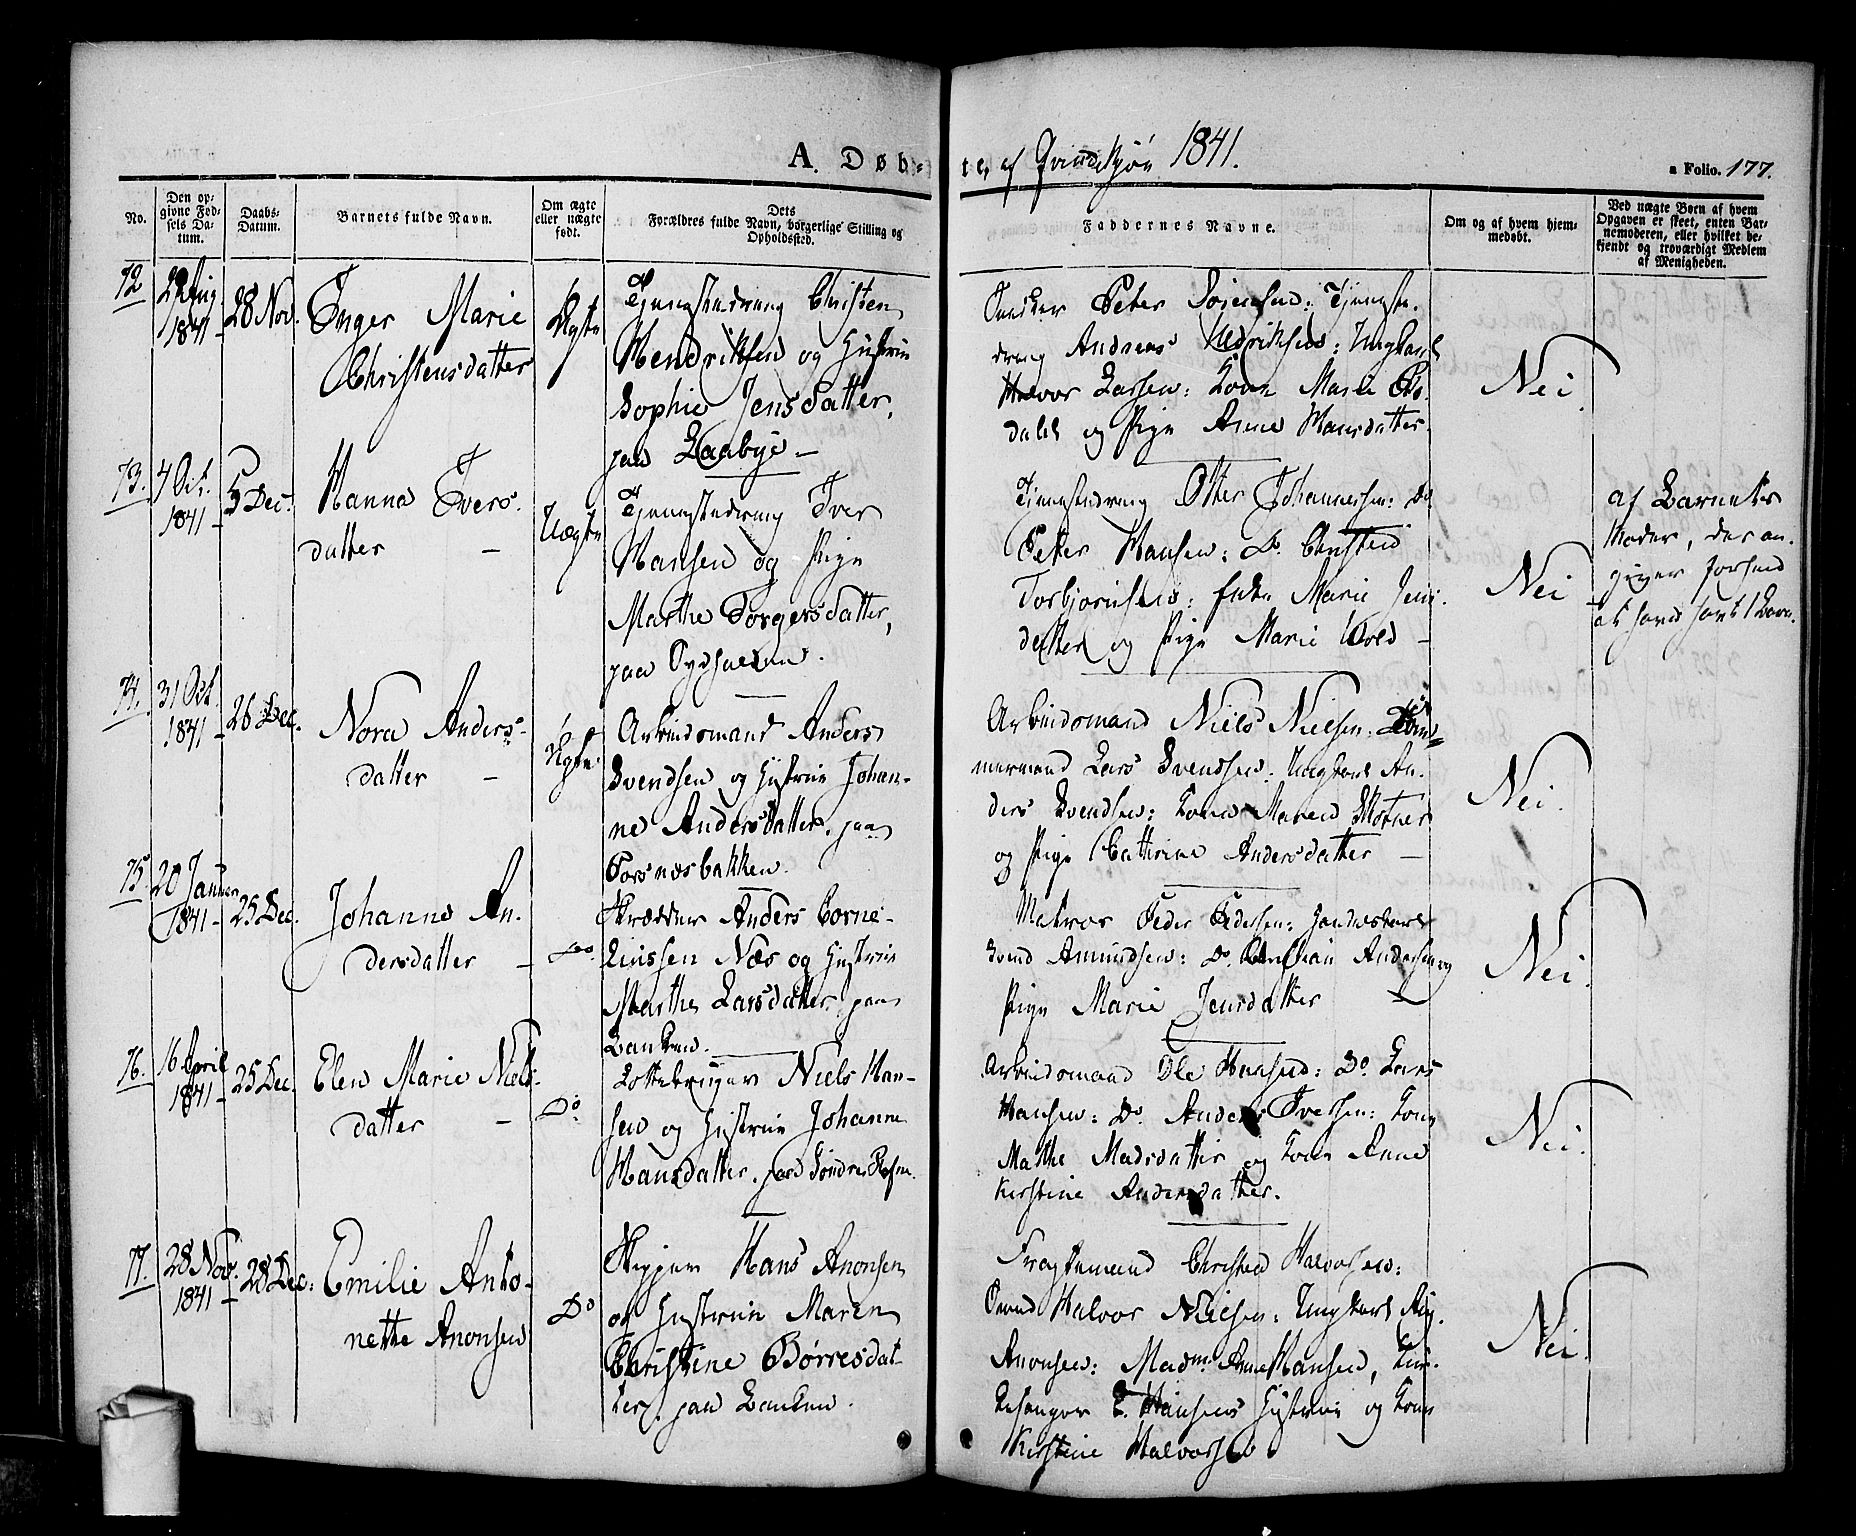 A. Døb-
te, af Qvindekjøn 1841.
a Folio. 177.
No.
Den op-
givne Fød-
sels Da-
tum.
Daabs-
Datum.
Barnets fulde Navn.
Om ægte
eller uægte
født.
Dets
Forældres fulde Navn, borgerlige Stilling og
Opholdssted.
Faddernes Navne.
Om og af hvem hjem-
medøbt.
Ved uægte Børn af hvem
Opgaven er skeet, enten Bar-
nemoderen, eller hvilket be-
kjendt og troværdigt Medlem
af Menigheden.
72
Aug
1841
28 Nov.
Inger Marie
Christensdatter
Ægte
Tjenestedreng Christen
Hendriksen og Hustrue
Sophie Jensdatter,
paa Laabye
Peter Sørensen: Tjeneste-
dreng Andreas Hedriksen: Ungkarl
Halvor Larsen: Kone Marie
og Pige Anne Hansdatter.
Nei.
73.
4 Oct.
1841
5 Dec.
Hanna Ivers-
datter
Uægte
Tjenestedreng Iver
Hansen og Pige
Marthe Torgersdatter,
paa
Tjenestedreng Otter Johannesen: Do
Peter Hansen: Do.
Torbjørnsen: Marie Jens-
datter og Pige Marie
Nei
af Barnets
Moder, der an-
giver
at have havt 1 Barn.
74.
31 Oct.
1841
26 Dec.
Nora Anders-
datter
Ægte.
Arbeidsmand Anders
Svendsen og Hustrue Johan-
ne Andersdatter, paa
Porsnæsbakken.
Arbeidsmand Niels Nielsen: Tøm-
mermand Lars Svendsen: Ungkarl An-
ders Svendsen: Kone Maren
og Pige Cathrine Andersdatter
Nei.
75.
20 Januar
1841
25 Dec.
Johanne An-
dersdatter
Do.
Skrædder Anders Corne-
liussen Næs og Hustrue
Marthe Larsdatter, paa
Banken.
Matros Peder Pedersen:
Svend Amundsen: Do. Christian Andersen og
Pige Marie Jensdatter
Nei.
76.
16 April
1841
25 Dec.
Elen Marie Niels-
datter
Do.
Niels Han-
sen og Hustrue Johanne
Hansdatter, paa Søndre
Arbeidsmand Ole Hansen: Do. Lars
Hansen: Do. Anders Iversen: Kone
Mathe Madsdatter og Kone Anne
Kirstine Andersdatter.
Nei.
77.
28 Nov.
1841
28 Dec:
Emilie Anto-
nette Anonsen
Do
Skipper Hans Anonsen
og Hustrue Maren
Christine Børresdat-
ter, paa Banken.
Fragtemand Christen Halvorsen:
Halvor Nielsen: Ungkarl
Anonsen: Madm. Anne Hansen, Kir-
kesanger E. Hansens Hustrue og Kone
Kirstine Halvorsen
Nei.